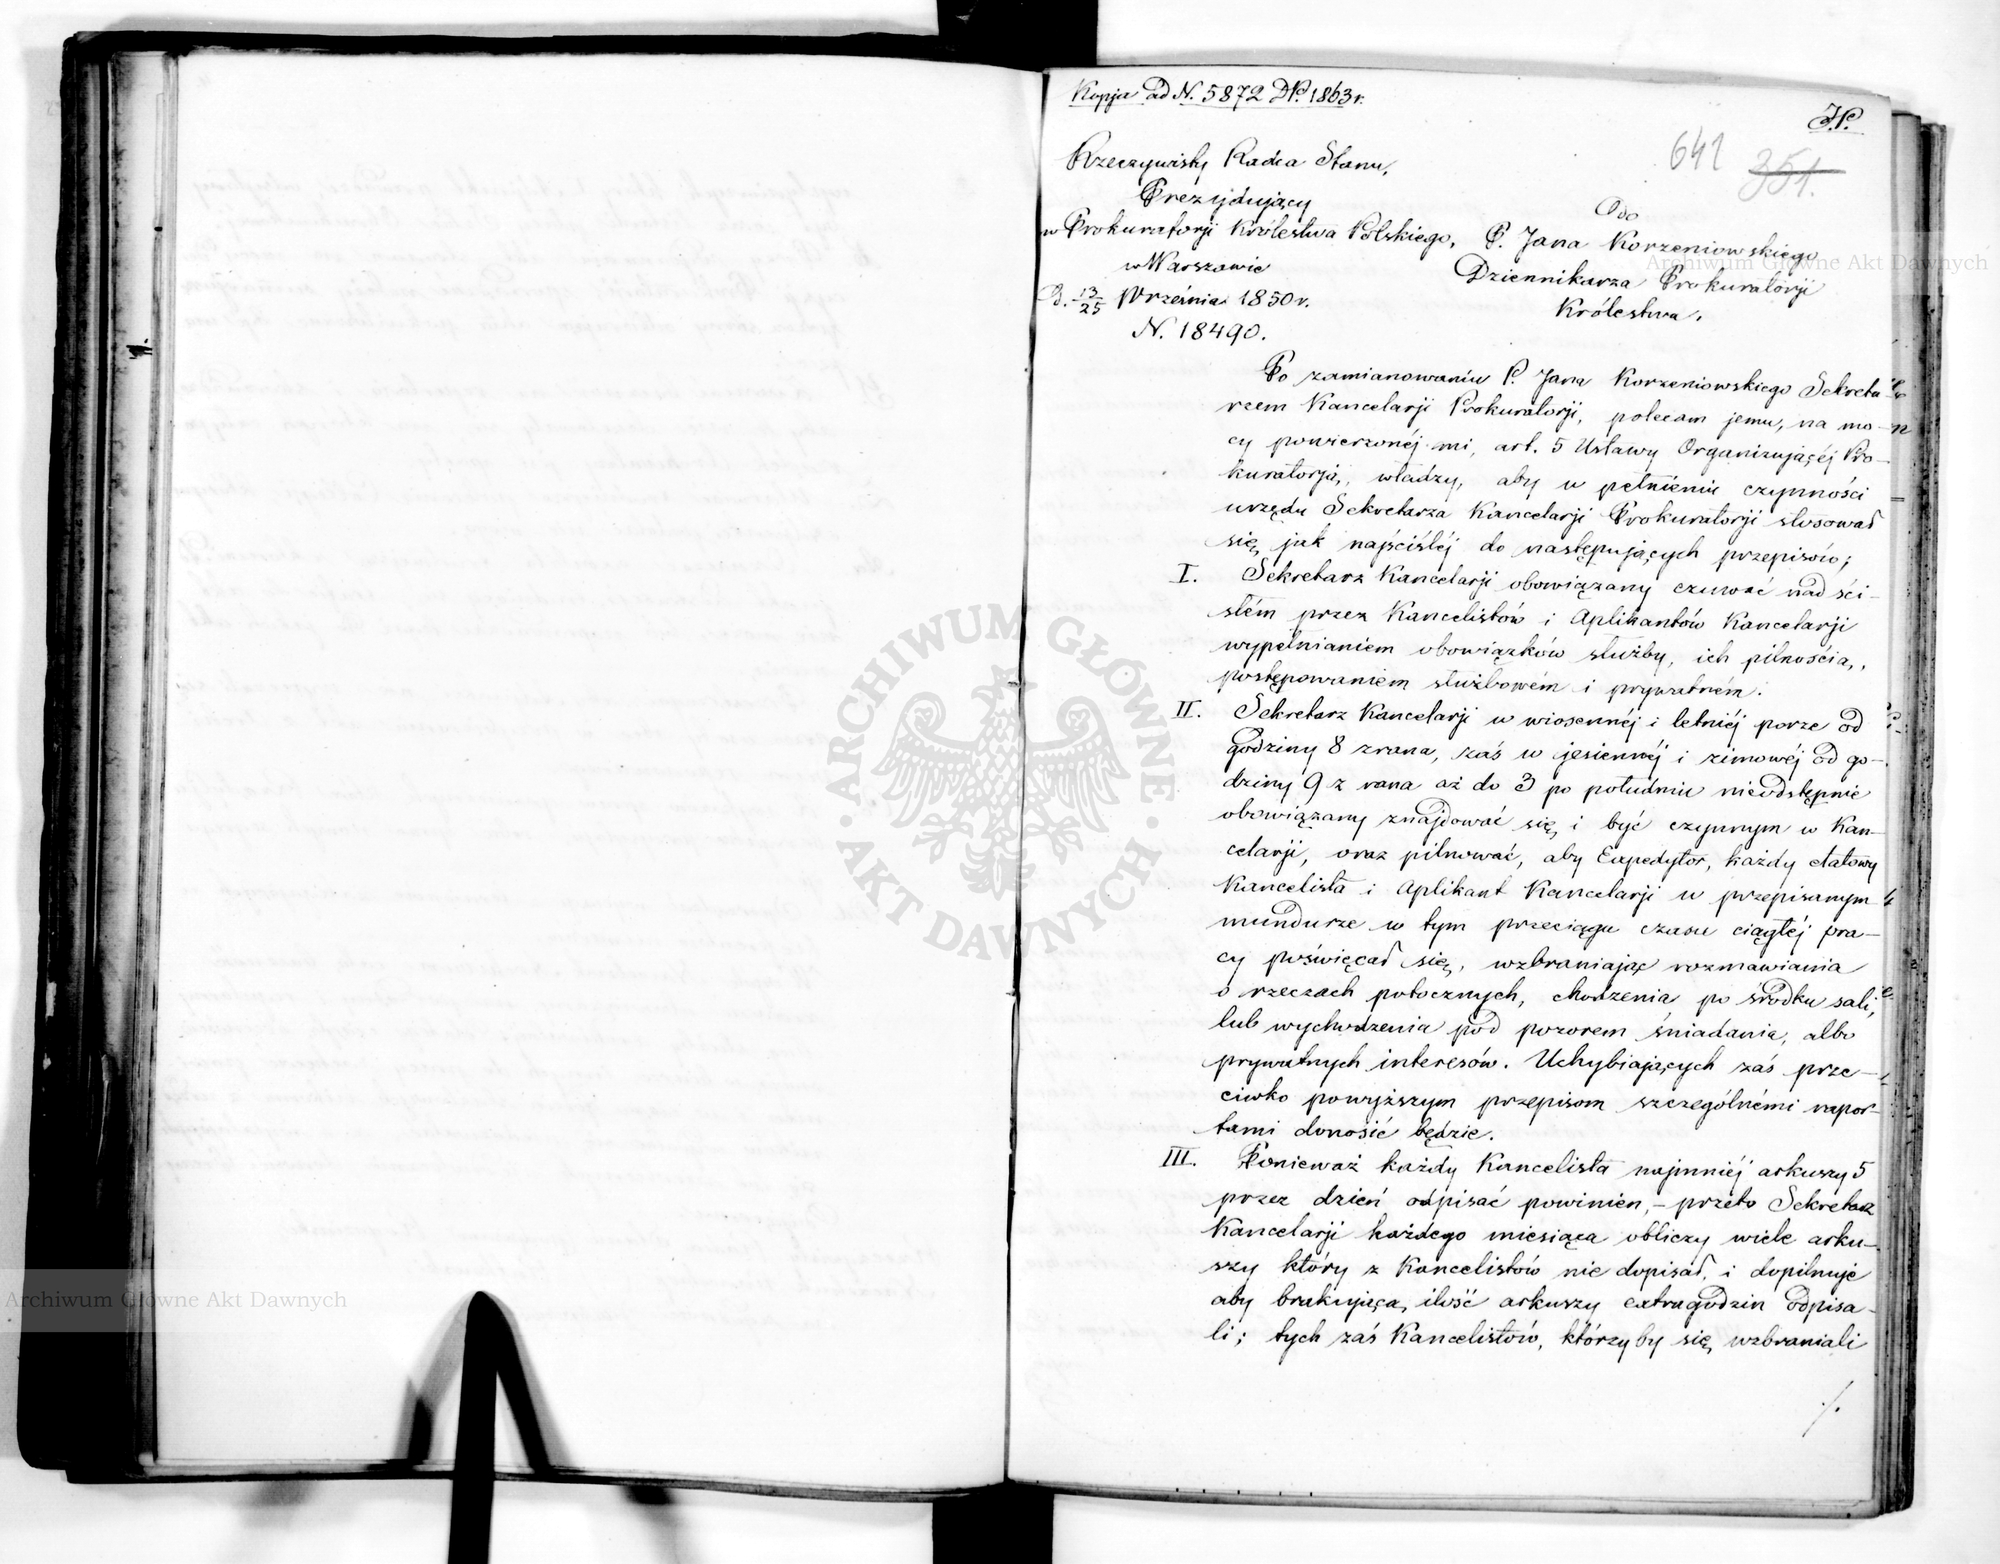 Kopja ad N. 5872 DP. 1863 r.
641
351.
Rzeczywisty Radca Stanu,
Prezydujący
w Prokuratorji Królestwa Polskiego,
w Warszawie
D. 13/25 Września 1850 r.
N. 18490.
Do
P. Jana Korzeniowskiego
Dziennikarza Prokuratorji
Królestwa.
Po zamianowaniu P. Jana Korzeniowskiego Sekreta
rzem Kancelarji Prokuratorji, polecam jemu, na mo-
cy powierzonéj mi, art. 5 Ustawy Organizującéj Pro-
kuratorją, władzy, aby w pełnieniu czynności
urzędu Sekretarza Kancelarji Prokuratorji stosował
się jak najściśléj do następujących przepisów;
I. Sekretarz Kancelarji obowiązany czuwać nad ści-
słém przez Kancelistów i Aplikantów Kancelarji
wypełnianiem obowiązków służby, ich pilnością,
postępowaniem służbowém i prywatném.
II. Sekretarz Kancelarji w wiosennéj i letniéj porze od
godziny 8 zrana, zaś w jesiennéj i zimowéj od go-
dziny 9 z rana aż do 3 po południu nieodstępnie
obowiązany znajdować się i być czynnym w Kan-
celarji, oraz pilnować, aby Expedytor, każdy etatowy
Kancelista i Aplikant Kancelarji w przepisanym
mundurze w tym przeciągu czasu ciągłéj pra-
cy poświęcał się, wzbraniając rozmawiania
o rzeczach potocznych, chodzenia po środku sali,
lub wychodzenia pod pozorem śniadania, albo
prywatnych interesów. Uchybiających zaś prze-
ciwko powyższym przepisom szczególnémi rapor-
tami donosić będzie.
III. Ponieważ każdy Kancelista najmniéj arkuszy 5
przez dzień odpisać powinien, – przeto Sekretarz
Kancelarji każdego miesiąca obliczy wiele arku-
szy który z Kancelistów nie dopisał, i dopilnuje
aby brakującą ilość arkuszy extragodzin odpisa-
li; tych zaś Kancelistów, którzyby się wzbraniali
./.
ARCHIWUM GŁÓWNE
AKT DAWNYCH
Archiwum Główne Akt Dawnych
Archiwum Główne Akt Dawnych